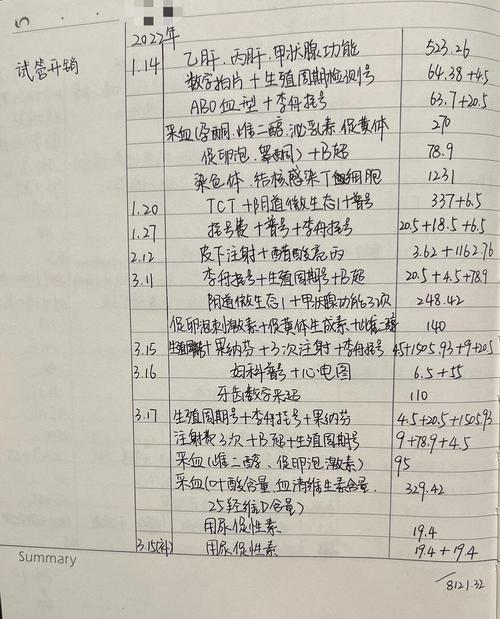 2022年
试管开销
1.14 乙肝.丙肝.甲状腺功能 523.26
数字拍片+生殖周期检测号 64.38+4.5
ABO血型+李舟挂号 63.7+20.5
采血(孕酮.雌二醇.泌乳素.促黄体 270
促卵泡.睾酮)+B超 78.9
染色体.结核感染T细胞 1231
1.20 TCT+阴道微生态+普号 337+6.5
1.27 挂号费+普号+李舟挂号 20.5+18.5+6.5
2.12 皮下注射+醋酸亮丙 3.62+1162.76
3.11 李舟挂号+生殖周期号+B超 20.5+4.5+78.9
阴道微生态+甲状腺功能3次 248.42
促卵泡刺激素+促黄体生成素+雌二醇 140
3.15 生殖周期+果纳芬+3次注射+李舟挂号 45+1505.93+9+20.5
3.16 妇科普号+心电图 6.5+55
牙齿数字采码 110
3.17 生殖周期号+李舟挂号+果纳芬 4.5+20.5+1505.93
注射费3次+B超+生殖周期号 9+78.9+4.5
采血(雌二醇、促卵泡激素) 95
采血(叶酸含量.血清维生素含量. 329.42
25羟维D含量)
用尿促性素 19.4
3.15(补) 用尿促性素 19.4+19.4
Summary
8121.32